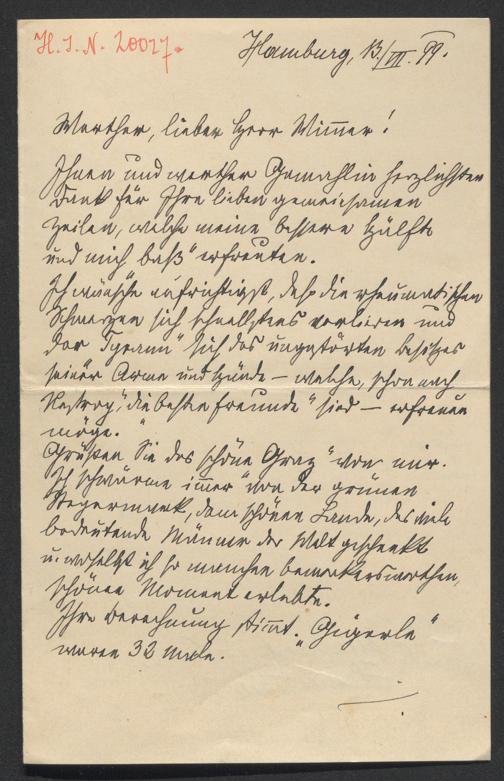 H. I. N. 20027.
Hamburg, 13/VII. 99.
Werther, lieber Herr Wimmer!
Ihnen und werther Gemahlin herzlichsten
Dank für Ihre lieben gemeinsamen
Zeilen, welche meine bessere Hälfte
und mich "baß" erfreuten.
Ich wünsche aufrichtigst, daß die rheumatischen
Schmerzen sich schnellstens verlieren und
der "Tyrann" sich des ungestörten Besitzes
seiner Arme und Hände – welche, schon nach
Nestroy, "die besten Freunde" sind – erfreuen
möge.
Grüßen Sie das schöne Graz von mir.
Ich schwärme immer von der grünen
Steyermark, dem schönen Lande, das viele
bedeutende Männer der Welt geschenkt
u. woselbst ich so manchen bemerkenswerthen,
schönen Moment erlebte.
Ihre Berechnung stimmt. "Gigerln"
waren 32 Male.